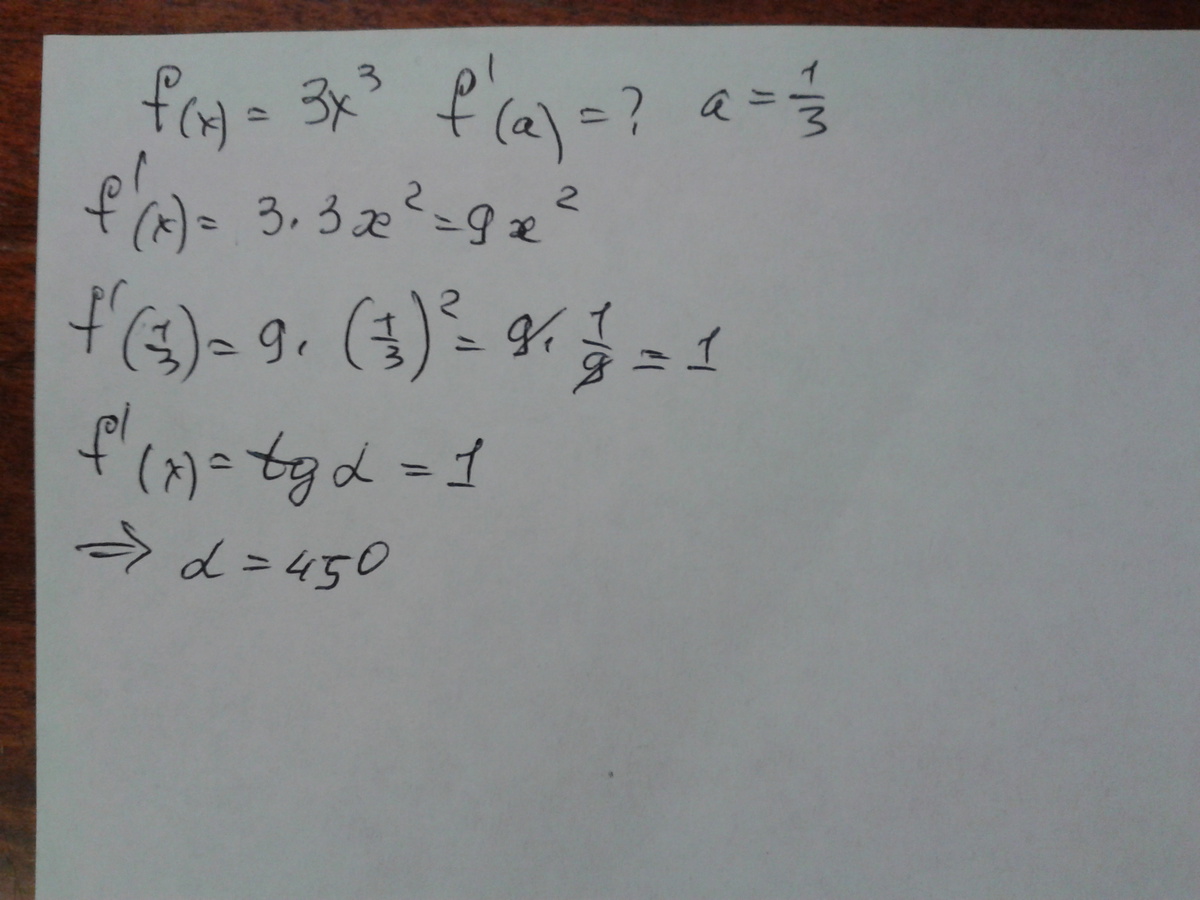 f(x) = 3x³ f'(a) = ? a = 1/3
f'(x) = 3·3x² = 9x²
f'(1/3) = 9·(1/3)² = 9·1/9 = 1
f'(x) = tg α = 1
⇒ α = 45°